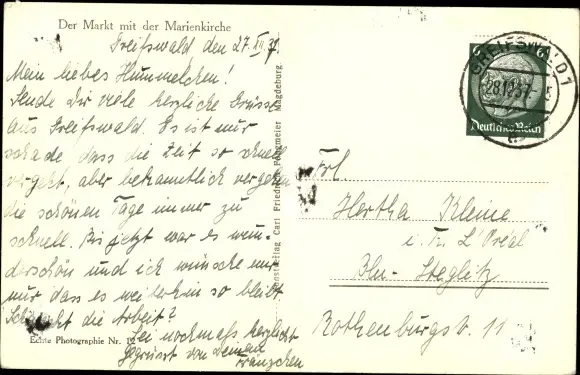 Der Markt mit der Marienkirche
Greifswald den 27.XII.37.
Mein liebes Hummelchen!
Sende Dir viele herzliche Grüsse
aus Greifswald. Es ist nur
schade dass die Zeit so schnell
vergeht, aber bekanntlich vergehen
die schönen Tage immer zu
schnell. Bis jetzt war es wun-
derschön und ich wünsche mir
nur dass es weiterhin so bleibt
die Arbeit?
Sei nochmals herzlich
gegrüsst von Deinem
Fränzchen
Echte Photographie Nr.
Carl Friedrich Magdeburg
GREIFSWALD 1
28.12.37
6
Deutsches Reich
Frl
Hertha Kleine
i. Fr. L'Oréal
Bln-Steglitz
Rothenburgstr. 11